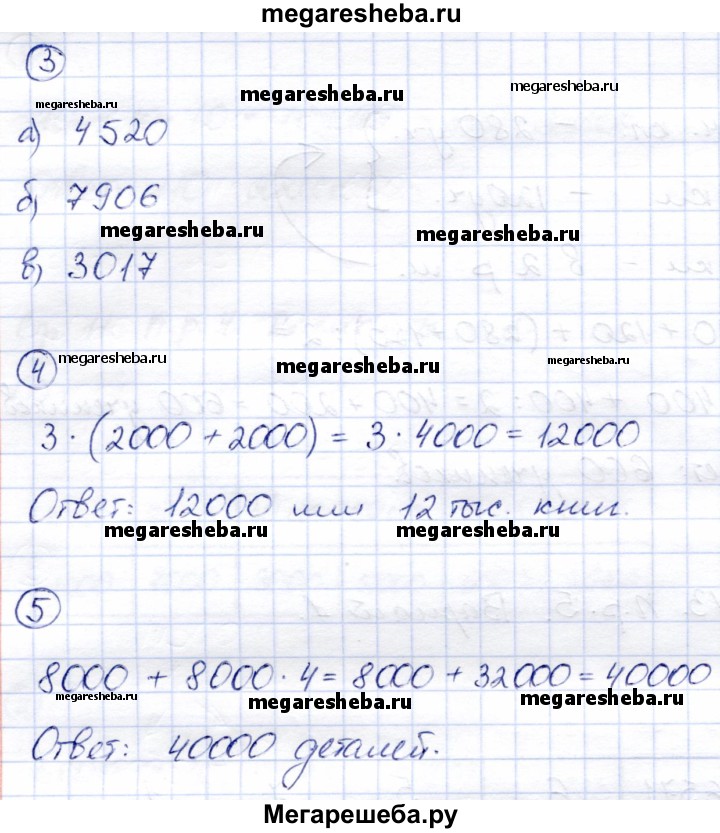 megaresheba.ru
3
megaresheba.ru megaresheba.ru megaresheba.ru
а) 4520
б) 7906
megaresheba.ru megaresheba.ru
в) 3017
4 megaresheba.ru megaresheba.ru megaresheba.ru
3 · (2000 + 2000) = 3 · 4000 = 12000
Ответ: 12000 или 12 тыс. книг.
megaresheba.ru megaresheba.ru
5
8000 + 8000 · 4 = 8000 + 32000 = 40000
megaresheba.ru megaresheba.ru megaresheba.ru
Ответ: 40000 деталей.
Мегарешеба.ру